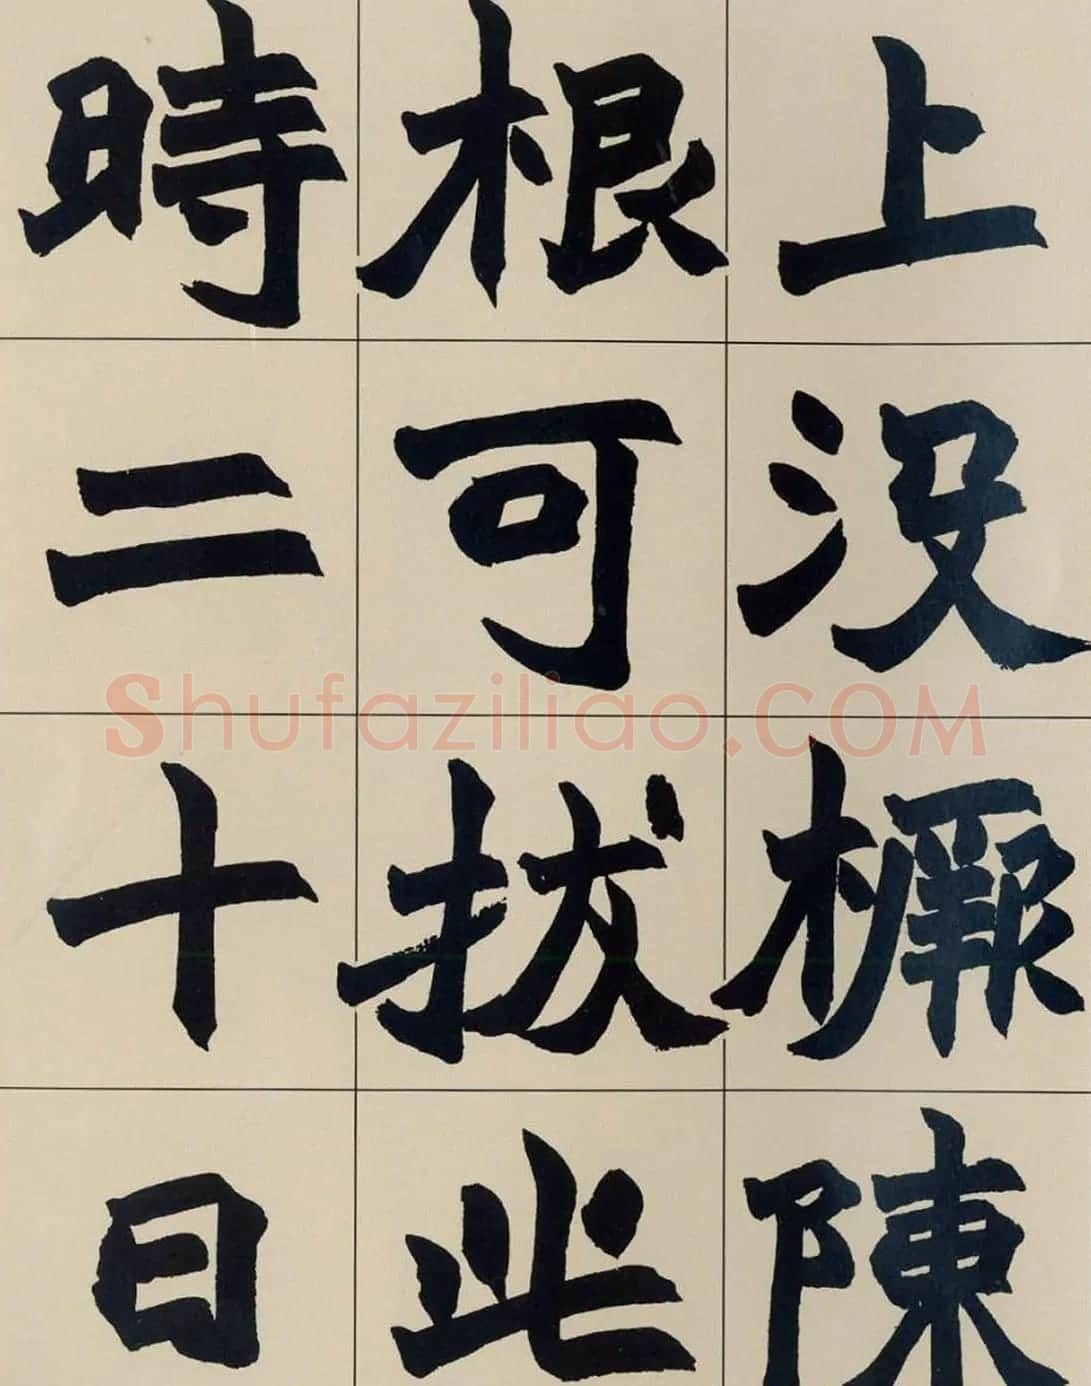 上没橛陳
根可拔此
時二十日
Shufaziliao.COM